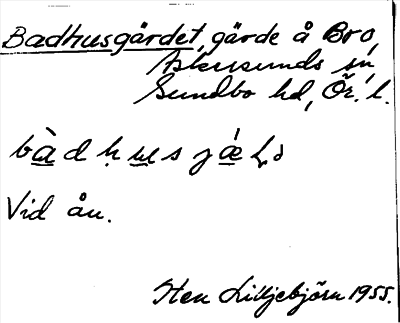 Badhusgärdet, gärde å Bro,
Askersunds sn,
Sundbo hd, Ör. l.
Vid ån.
Sten Lilljebjörn 1955.